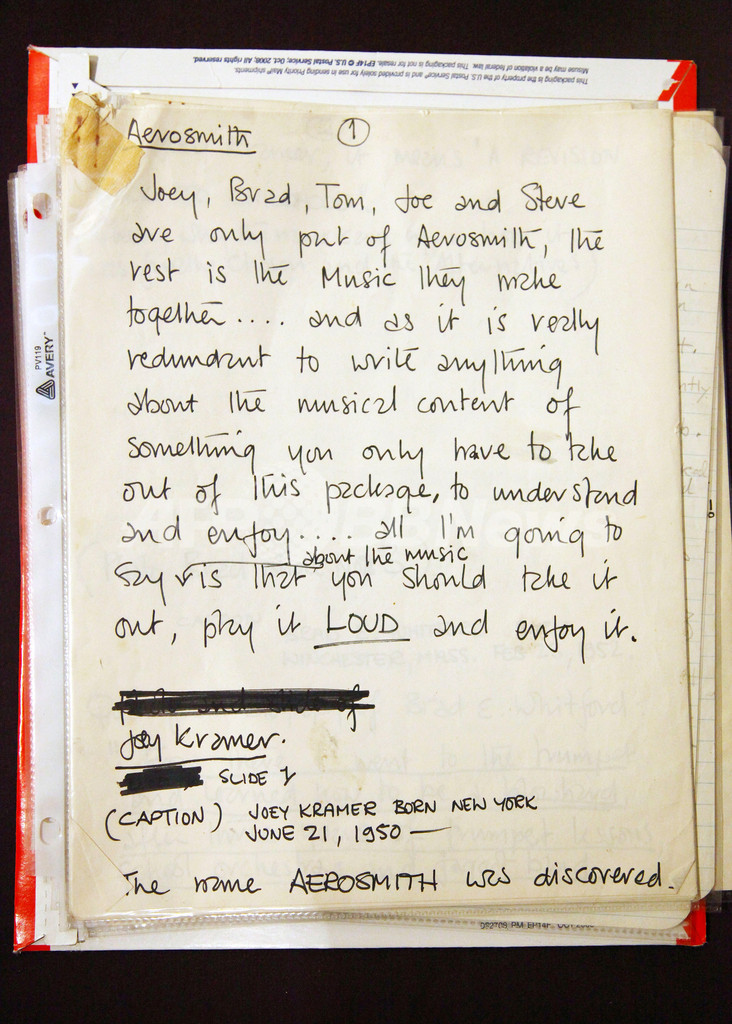 Misuse may be a violation of federal law. This packaging is not for resale. EP14F © U.S. Postal Service; Oct. 2008; All rights reserved.
This packaging is the property of the U.S. Postal Service® and is provided solely for use in sending Priority Mail® shipments.
Aerosmith ①
Joey, Brad, Tom, Joe and Steve
are only part of Aerosmith, the
rest is the Music they make
together.... and as it is really
redundant to write anything
about the musical content of
something you only have to take
out of this package, to understand
and enjoy.... all I'm going to
about the music
say is that you should take it
out, play it LOUD and enjoy it.
Joey Kramer.
SLIDE 1
(CAPTION) JOEY KRAMER BORN NEW YORK
JUNE 21, 1950 —
The name AEROSMITH was discovered.
PV119
AVERY